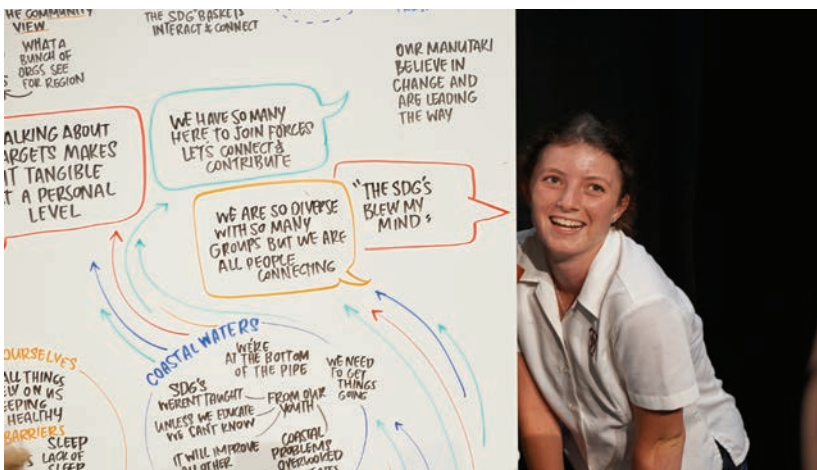 HE COMMUNITY
VIEW
WHAT A
BUNCH OF
ORGS SEE
FOR REGION
THE SDG BASKETS
INTERACT & CONNECT
OUR MANUTAKI
BELIEVE IN
CHANGE AND
ARE LEADING
THE WAY
ALKING ABOUT
ARGETS MAKES
IT TANGIBLE
AT A PERSONAL
LEVEL
WE HAVE SO MANY
HERE TO JOIN FORCES
LET'S CONNECT &
CONTRIBUTE
WE ARE SO DIVERSE
WITH SO MANY
GROUPS BUT WE ARE
ALL PEOPLE
CONNECTING
"THE SDG'S
BLEW MY
MIND"
OURSELVES
ALL THINGS
ELY ON US
EEPING
HEALTHY
BARRIERS
SLEEP
LACK OF
SLEEP
COASTAL WATERS
WE'RE
AT THE BOTTOM
OF THE PIPE
SDG'S
WERENT TAUGHT
UNLESS WE EDUCATE
WE CAN'T KNOW
FROM OUR
YOUTH
WE NEED
TO GET
THINGS
GOING
IT WILL IMPROVE
ALL OTHER
COASTAL
PROBLEMS
OVERLOOKED